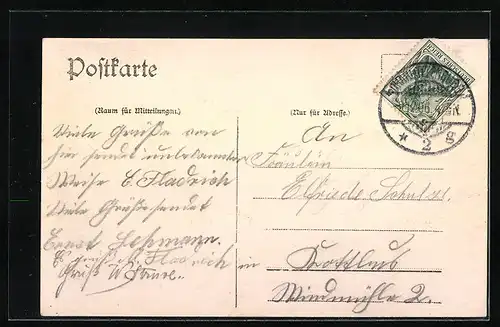 Postkarte
(Raum für Mitteilungen.)
(Nur für Adresse.)
Viele Grüße von
hier sendet unbekannter
Weise E. Fladrich
Viele Grüße sendet
Ernst Lehmann.
Fladrich
Gruß W.
An
Fräulein
Elfriede Schulze
in
Kottbus
Windmühle 2.
* 2 8